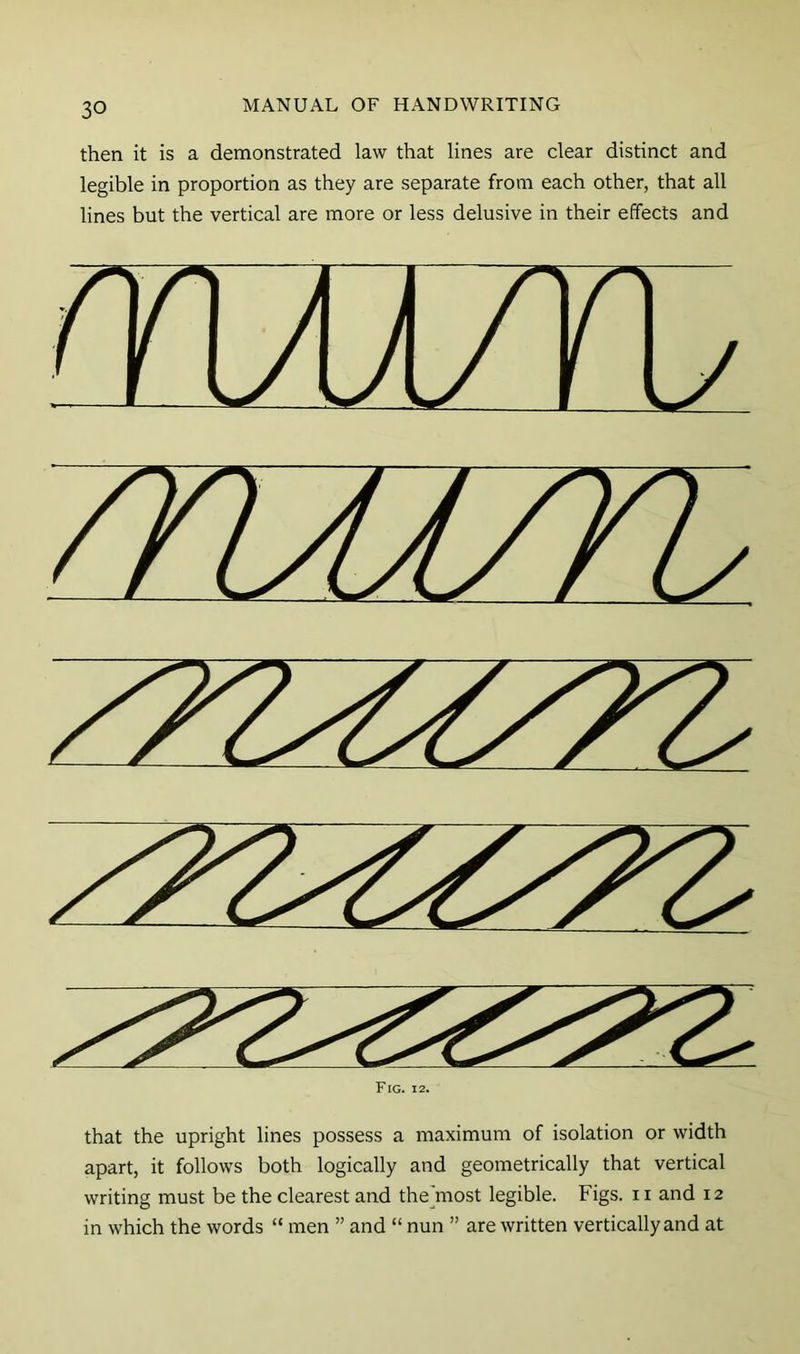 30 MANUAL OF HANDWRITING
then it is a demonstrated law that lines are clear distinct and
legible in proportion as they are separate from each other, that all
lines but the vertical are more or less delusive in their effects and
nun
nun
nun
nun
nun
FIG. 12.
that the upright lines possess a maximum of isolation or width
apart, it follows both logically and geometrically that vertical
writing must be the clearest and the most legible. Figs. 11 and 12
in which the words “ men ” and “ nun ” are written vertically and at